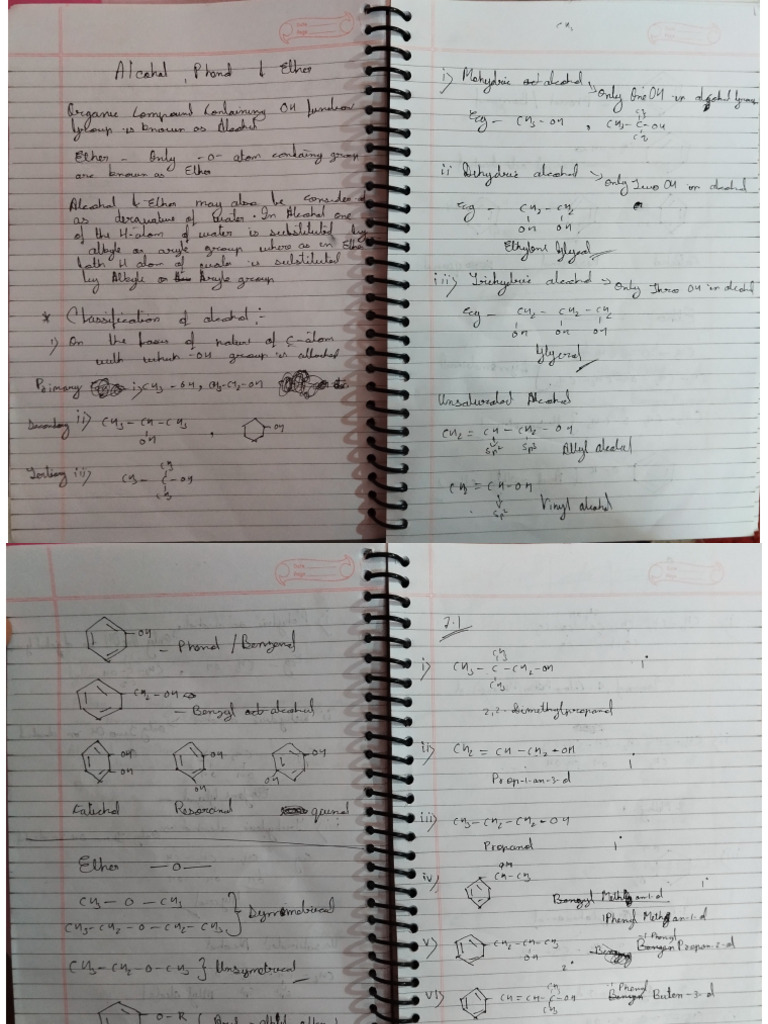 Alcohol, Phenol & Ether
Organic Compound Containing OH function
Group is known as Alcohol
Ether - Only -O- atom containg group
are known as Ether
Alcohol & Ether may also be considered
as derivative of water. In Alcohol one
of the H-atom of water is substituted by
alkyle or aryle group where as in Ether
both H atom of water is substituted
by Alkyle or Aryle group
* Classification of alcohol :-
i) On the basis of nature of C-atom
with which -OH group is attached
Primary i) CH3 - OH, CH3-CH2-OH
Secondary ii) CH3 - CH - CH3
OH
, OH
Tertiary iii) CH3
CH3 - C - OH
CH3
CH3
i) Mohydric alcohol → Only One OH in alcohol group
Eg - CH3 - OH , CH3 - C - OH
CH3
CH3
ii Dihydric alcohol → Only Two OH in alcohol
Eg - CH2 - CH2
OH OH
Ethylene Glycol
iii) Trihydric alcohol → Only Three OH in alcohol
Eg - CH2 - CH2 - CH2
OH OH OH
Glycerol
Unsaturated Alcohol
CH2 = CH - CH2 - OH
Sp2 Sp3 Allyl alcohol
CH2 = CH - OH
Sp2 Vinyl alcohol
OH
- Phenol / Benzenol
CH2 - OH
- Benzyl alcohol
OH OH OH
OH OH OH
Katechol Resorcinol quinol
Ether - O -
CH3 - O - CH3
CH3 - CH2 - O - CH2 - CH3 } Symmetrical
CH3 - CH2 - O - CH3 } Unsymetrical
O - R
7.1
i) CH3
CH3 - C - CH2 - OH 1°
CH3
2,2-dimethylpropanol
ii) CH2 = CH - CH2 - OH 1°
Prop-1-an-3-ol
iii) CH3 - CH2 - CH2 - OH
Propanol 1°
iv) OH
CH - CH3 1°
Benzyl Methan-1-ol
1Phenyl Methan-1-ol
v) CH2 - CH - CH3
OH 2°
1 Phenyl
Propan-2-ol
vi) CH3
CH = CH - C - OH
CH3
Phenyl
Buten-3-ol